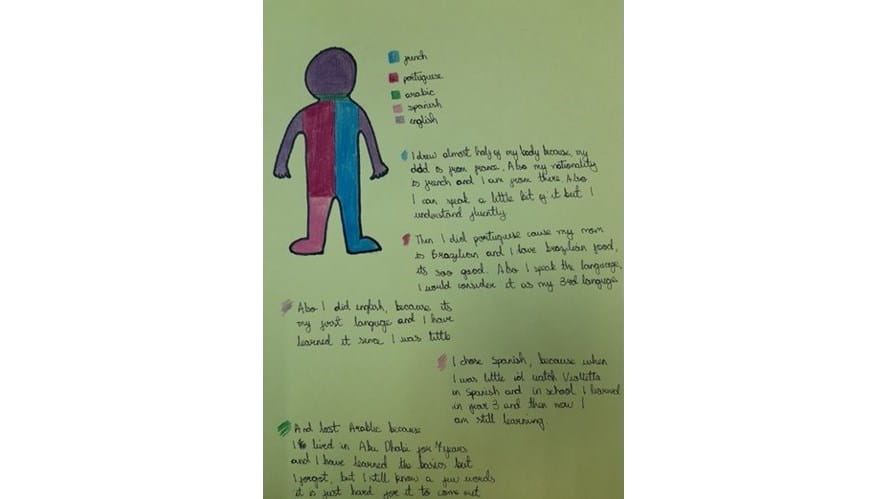 french
portuguese
arabic
spanish
english
I drew almost half of my body because my
dad is from france. Also my nationality
is french and I am from there. Also
I can speak a little bit of it but I
understand fluently
Then I did portuguese cause my mom
is Brazilian and I love brazilian food,
its soo good. Also I speak the language,
I would consider it as my 3rd languge
Also I did english, because its
my first languge and I have
learned it since I was little
I chose Spanish, because when
I was little id watch Violetta
in Spanish and in school I learned
in year 3 and then now I
am still learning.
And last Arabic because
I lived in Abu Dhabi for years
and I have learned the basics but
I forgot, but I still know a few words
it is just hard for it to come out